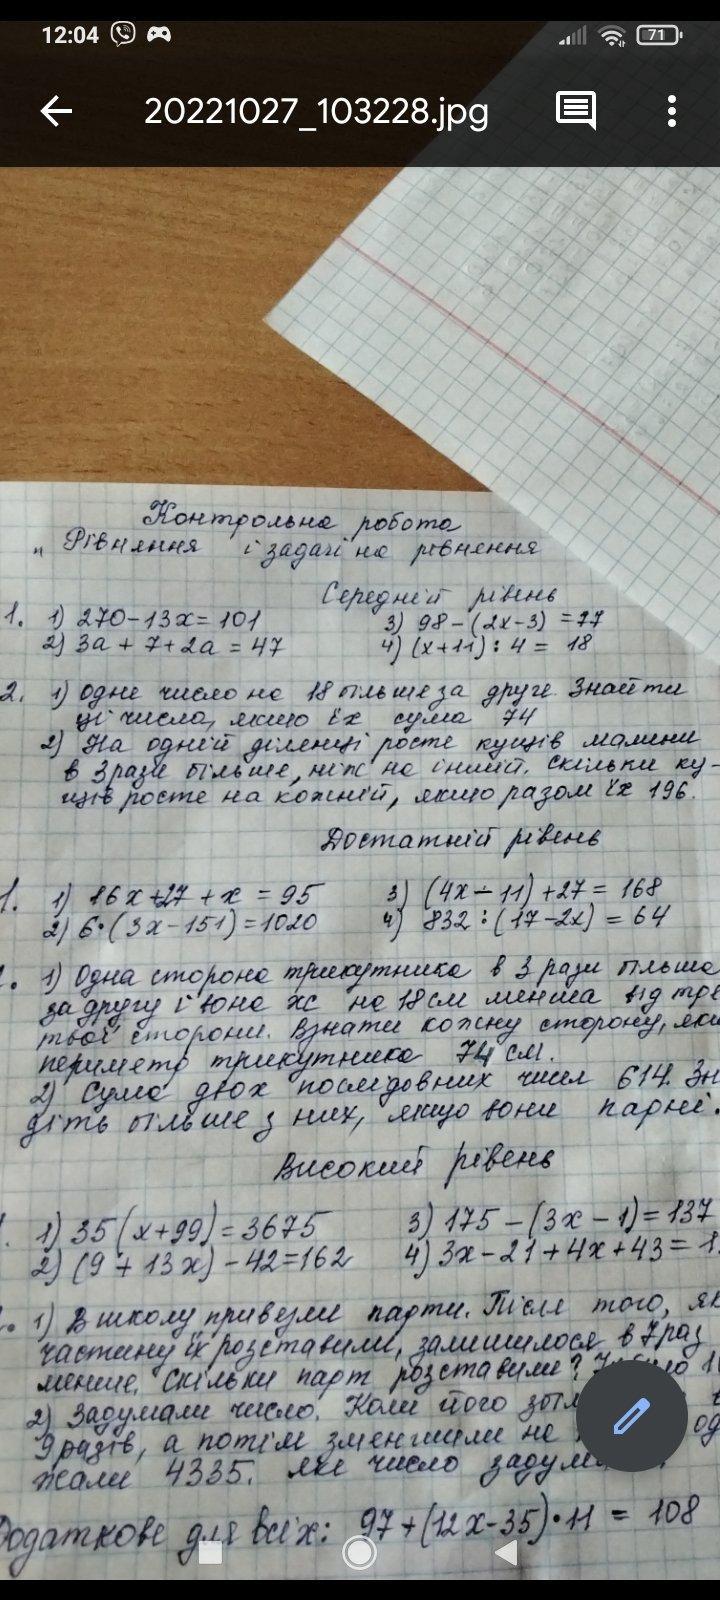 12:04
71
20221027_103228.jpg
Контрольна робота
„ Рівняння і задачі на рівнення
Середній рівень
1. 1) 270-13x=101 3) 98-(2x-3) =77
2) 3a+7+2a=47 4) (x+11):4= 18
2. 1) Одне число на 18 більше за друге. Знайти
ці числа, якщо їх сума 74
2) На одній ділянці росте кущів малини
в 3 рази більше, ніж на іншій. Скільки ку-
щів росте на кожній, якщо разом їх 196.
Достатній рівень
1. 1) 16x+27+x=95 3) (4x-11)+27=168
2) 6·(3x-151)=1020 4) 832:(17-2x)=64
1) Одна сторона трикутника в 3 рази більша
за другу і вона на 18см менша від
сторони. кожну сторону,
периметр трикутника 74 см.
2) Сума двох послідовних чисел 614.
діть більше з них, якщо вони парні.
Високий рівень
1) 35(x+99)=3675 3) 175-(3x-1)=137
2) (9+13x)-42=162 4) 3x-21+4x+43=
1) В школу привезли парти. Після того, як
частину їх розставили, залишилося в 7 раз
менше. Скільки парт розставили?
2) Задумали число. Коли його
9 разів, а потім зменшили на
жали 4335. яке число
Додаткове для всіх: 97+(12x-35)·11 = 108